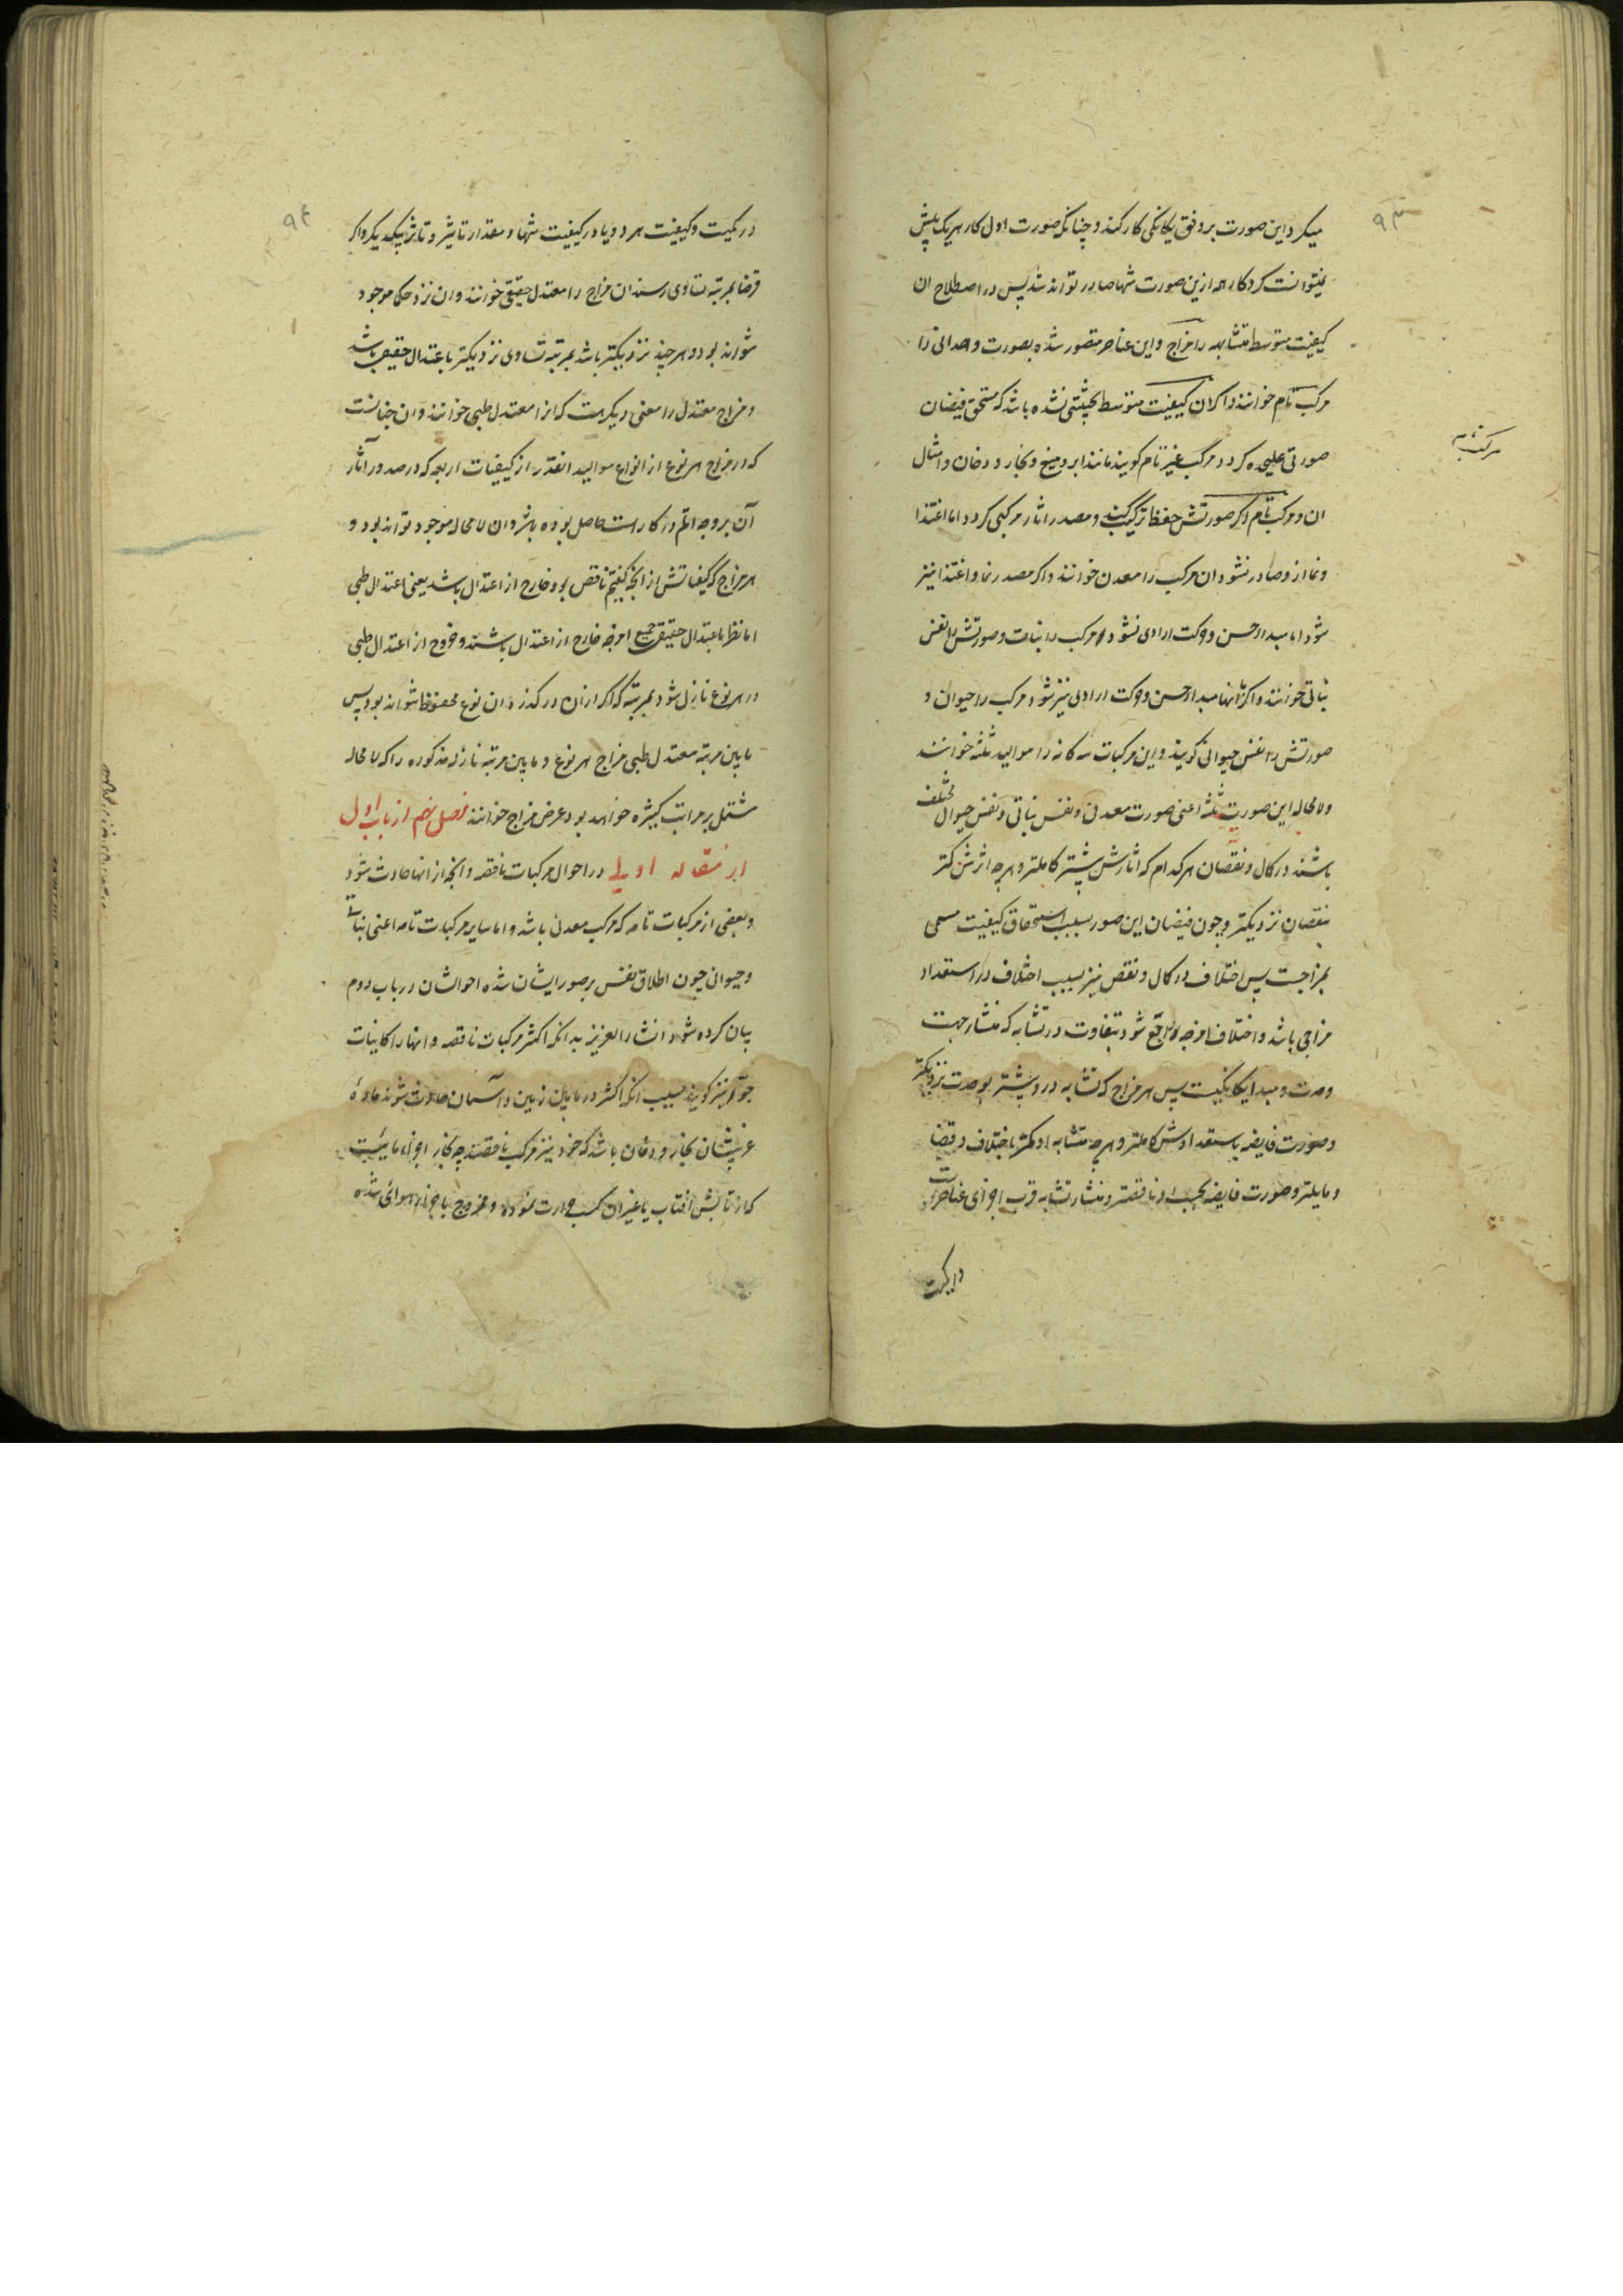 ۹۳
میکرد این صورت بر وفق یکانکی کار کند و چنانکه صورت اول کار هر یک پیش
نمیتوانست کرد کار همه ازین صورت تنها صادر تواند شد پس در اصطلاح ان
کیفیت متوسط متشابهه را مزاج و این عناصر متصور شده بصورت وحدانی را
مرکب تام خوانند و اکر ان کیفیت متوسط بحیثیتی نشده باشد که مستحق فیضان
صورتی علیحده کردد مرکب غیر تام کویند مانند ابر و میغ و بخار و دخان و امثال
ان و مرکب تام اکر صورتش حفظ ترکیب کند و مصدر اثار مرکبی کردد اما اغتذا
و نما از و صادر نشود ان مرکب را معدن خوانند و اکر مصدر نما و اغتذا نیز
شود اما مبدا حس و حرکت ارادی نشود مرکب را نبات و صورتش را نفس
نباتی خوانند و اکر با اینها مبدا حس و حرکت ارادی نیز شود مرکب را حیوان و
صورتش را نفس حیوانی کویند و این مرکبات سه کانه را موالید ثلثه خوانند
و لا محاله این صورت ثلثه اعنی صورت معدنی و نفس نباتی و نفس حیوانی مختلف
باشند در کمال و نقصان هر کدام که اثارش بیشتر کاملتر و هر چه اثرش کمتر
بنقصان نزدیکتر و چون فیضان این صور بسبب استحقاق کیفیت مسمی
بمزاجست پس اختلاف در کمال و نقص نیز بسبب اختلاف در استعداد
مزاجی باشد و اختلاف امزجه راجع شود بتفاوت در تشابه که منشا جهت
وحدت و مبدا یکانکیست پس هر مزاج که تشابه در و بیشتر بوحدت نزدیکتر
و صورت فایضه باستعدادش کاملتر و هر چه تشابه او کمتر باختلاف و تضاد
مایلتر و صورت فایضه بحسب او ناقصتر و منشا تشابه قرب اجزای عناصر است
۹۴
در کمیت و کیفیت هر دو یا در کیفیت تنها و مقدار تاثیر و تاثر بیکدیکر و اکر
فرضا بمرتبه تساوی رسند ان مزاج را معتدل حقیقی خوانند و ان نزد حکما موجود
نتواند بود و هر چند نزدیکتر باشد بمرتبه تساوی نزدیکتر باعتدال حقیقی باشد
و مزاج معتدل را معنی دیکر هست که انرا معتدل طبی خوانند و ان چنانست
که در مزاج هر نوع از انواع موالید انقدر از کیفیات اربعه که در صدور آثار
آن بر وجه اتم در کار است حاصل بوده باشد و ان لا محاله موجود تواند بود و
هر مزاج که کیفیاتش از انچه کفتیم ناقص بود خارج از اعتدال باشد یعنی اعتدال طبی
اما نظر باعتدال حقیقی جمیع امزجه خارج از اعتدال باشند و خروج از اعتدال طبی
در هر نوع نازل شود بمرتبه که اکر ازان در کذرد ان نوع محفوظ نتواند بود پس
مابین مرتبه معتدل طبی مزاج هر نوع و مابین مرتبه نازله مذکوره را که لا محاله
مشتمل بر مراتب کثیره خواهد بود عرض مزاج خوانند فصل نهم از باب اول
از مقاله اولی در احوال مرکبات ناقصه و انچه از انها حادث شود
و بعضی از مرکبات تامه که مرکب معدنی باشد و اما سایر مرکبات تامه اعنی نباتی
و حیوانی چون اطلاق نفس بر صور ایشان شده احوالشان در باب دوم
بیان کرده شود انشاء العزیز بدانکه اکثر مرکبات ناقصه و انها را کاینات
جو نیز کویند بسبب انکه اکثر در مابین زمین و آسمان حادث شوند مادهٔ
قریبشان بخار و دخان باشد که خود نیز مرکب ناقصند چه بخار اجزاء مائیست
که از تابش افتاب یا غیر ان کسب حرارت نموده و ممزوج باجزاء هوائی شده